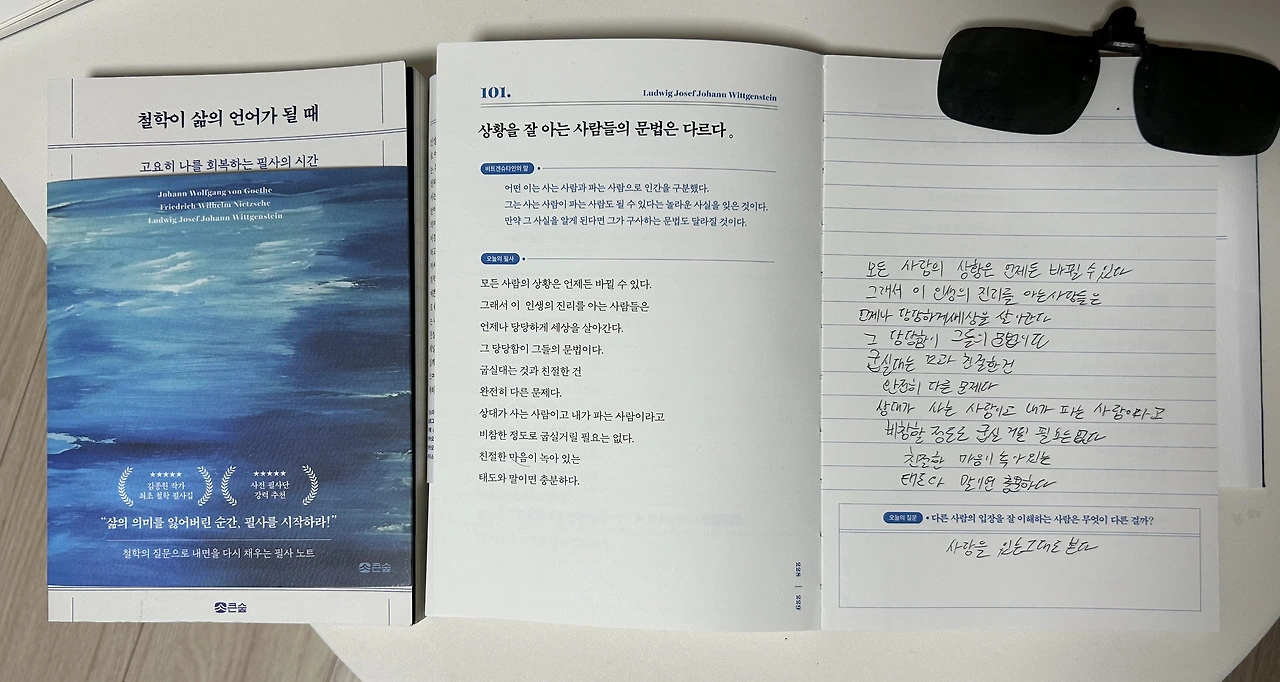 철학이 삶의 언어가 될 때
고요히 나를 회복하는 필사의 시간
Johann Wolfgang von Goethe
Friedrich Wilhelm Nietzsche
Ludwig Josef Johann Wittgenstein
★★★★★
김종원 작가
최초 철학 필사집
★★★★★
사전 필사단
강력 추천
“삶의 의미를 잃어버린 순간, 필사를 시작하라!”
철학의 질문으로 내면을 다시 채우는 필사 노트
큰숲
큰숲
101.
Ludwig Josef Johann Wittgenstein
상황을 잘 아는 사람들의 문법은 다르다。
비트겐슈타인의 말
어떤 이는 사는 사람과 파는 사람으로 인간을 구분했다.
그는 사는 사람이 파는 사람도 될 수 있다는 놀라운 사실을 잊은 것이다.
만약 그 사실을 알게 된다면 그가 구사하는 문법도 달라질 것이다.
오늘의 필사
모든 사람의 상황은 언제든 바뀔 수 있다.
그래서 이 인생의 진리를 아는 사람들은
언제나 당당하게 세상을 살아간다.
그 당당함이 그들의 문법이다.
굽실대는 것과 친절한 건
완전히 다른 문제다.
상대가 사는 사람이고 내가 파는 사람이라고
비참한 정도로 굽실거릴 필요는 없다.
친절한 마음이 녹아 있는
태도와 말이면 충분하다.
228 | 229
모든 사람의 상황은 언제든 바뀔 수 있다
그래서 이 인생의 진리를 아는사람들은
언제나 당당하게세상을 살아간다
그 당당함이 그들의 문법이다
굽실대는 친절한건
완전히 다른 문제다
상대가 사는 사람이고 내가 파는 사람이라고
비참할 정도로 굽실 거릴 필요는없다
친절한 마음이 녹아 있는
태도와 말이면 충분하다
오늘의 질문 • 다른 사람의 입장을 잘 이해하는 사람은 무엇이 다른 걸까?
사람을 있는그대로 본다